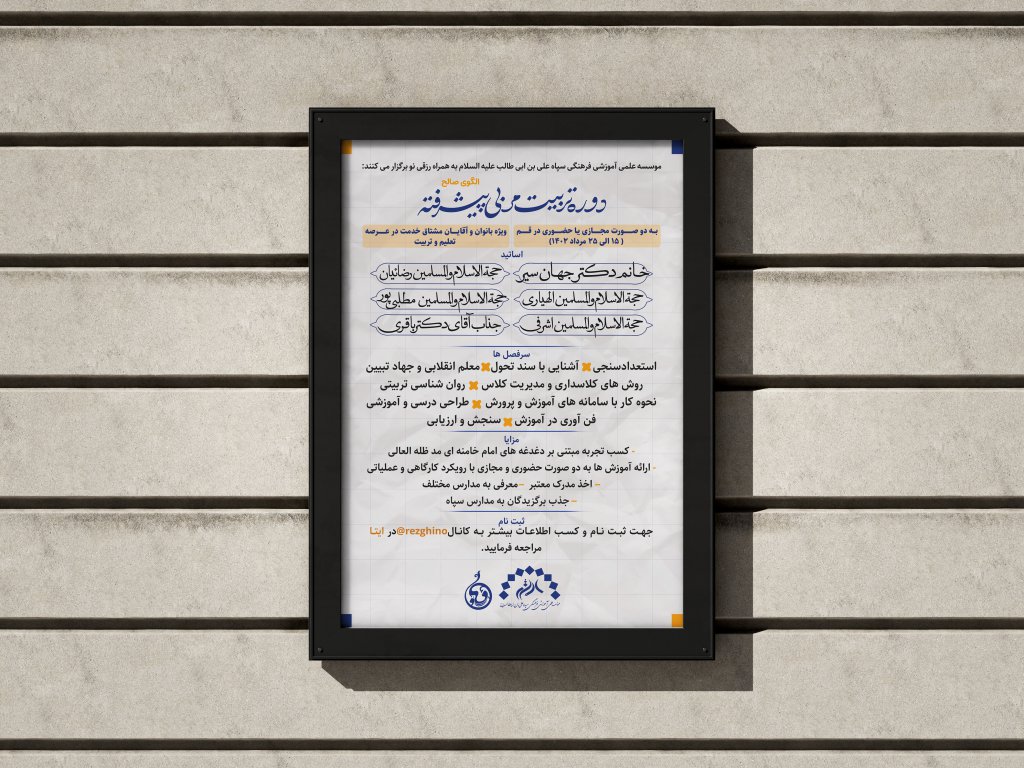 موسسه علمی آموزشی فرهنگی سپاه علی بن ابی طالب علیه السلام به همراه رزقی نو برگزار می کنند:
الگوی صالح
دوره تربیت مربی پیشرفته
به دو صورت مجازی یا حضوری در قم
( ۱۵ الی ۲۵ مرداد ۱۴۰۲)
ویژه بانوان و آقایان مشتاق خدمت در عرصه
تعلیم و تربیت
اساتید
خانم دکتر جهان سیر
حجة الاسلام والمسلمین رضائیان
حجة الاسلام والمسلمین الهیاری
حجة الاسلام والمسلمین مطلبی پور
حجة الاسلام والمسلمین اشرفی
جناب آقای دکتر باقری
سرفصل ها
استعدادسنجی آشنایی با سند تحول معلم انقلابی و جهاد تبیین
روش های کلاسداری و مدیریت کلاس روان شناسی تربیتی
نحوه کار با سامانه های آموزش و پرورش طراحی درسی و آموزشی
فن آوری در آموزش سنجش و ارزیابی
مزایا
- کسب تجربه مبتنی بر دغدغه های امام خامنه ای مد ظله العالی
- ارائه آموزش ها به دو صورت حضوری و مجازی با رویکرد کارگاهی و عملیاتی
- اخذ مدرک معتبر - معرفی به مدارس مختلف
- جذب برگزیدگان به مدارس سپاه
ثبت نام
جهت ثبت نام و کسب اطلاعات بیشتر به کانال @rezghino در ایتا
مراجعه فرمایید.